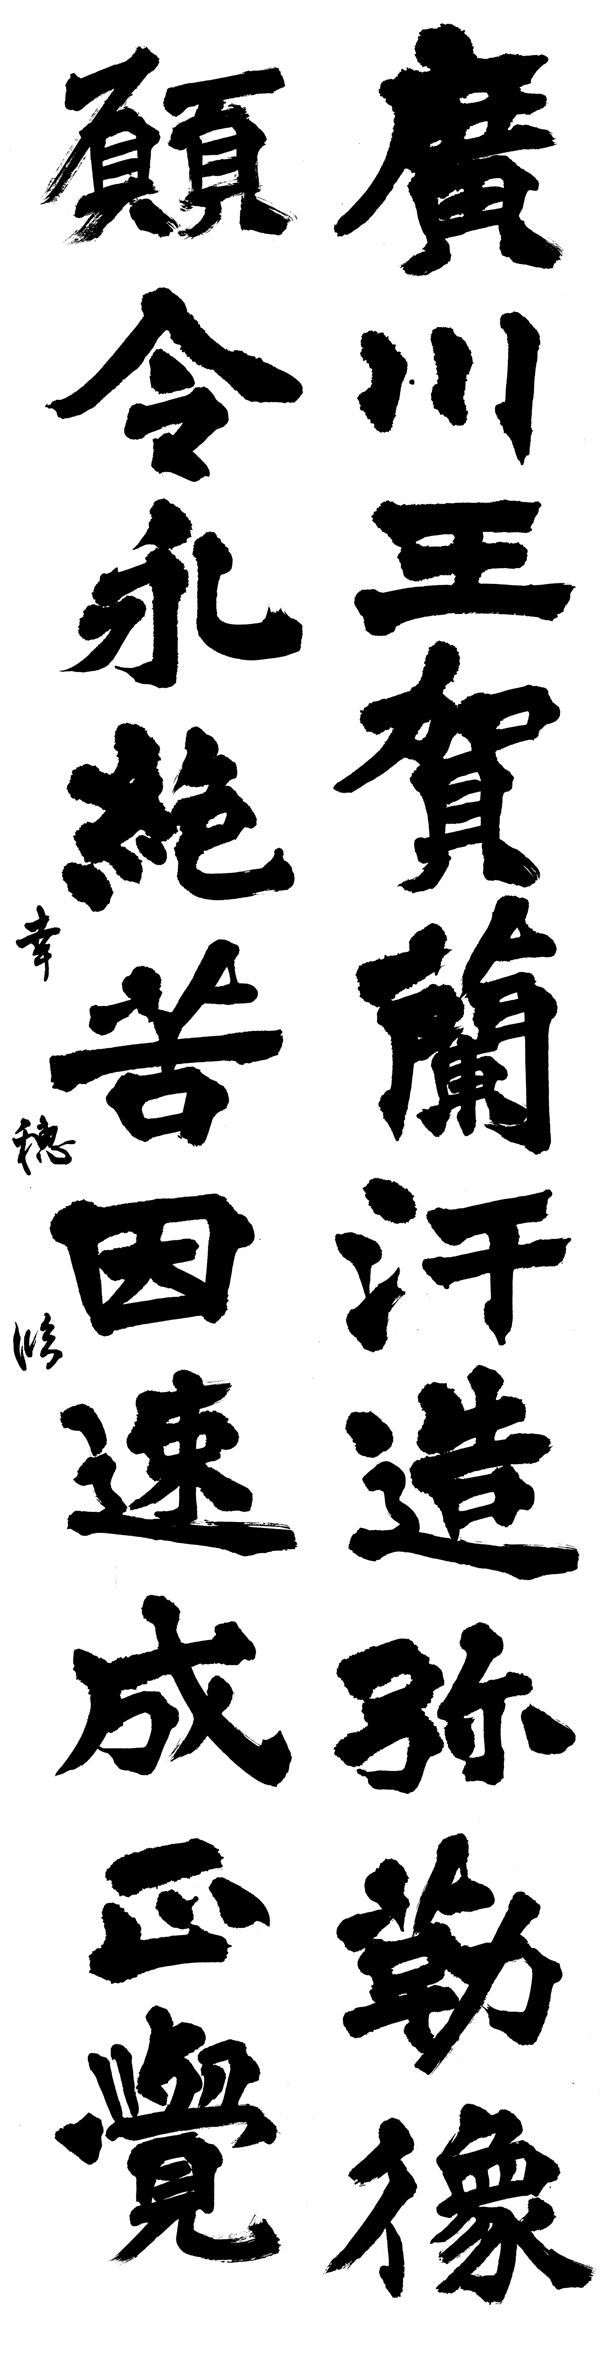 廣川王賀蘭汗造弥勒像
願令永絶苦因速成正覺
幸穂臨